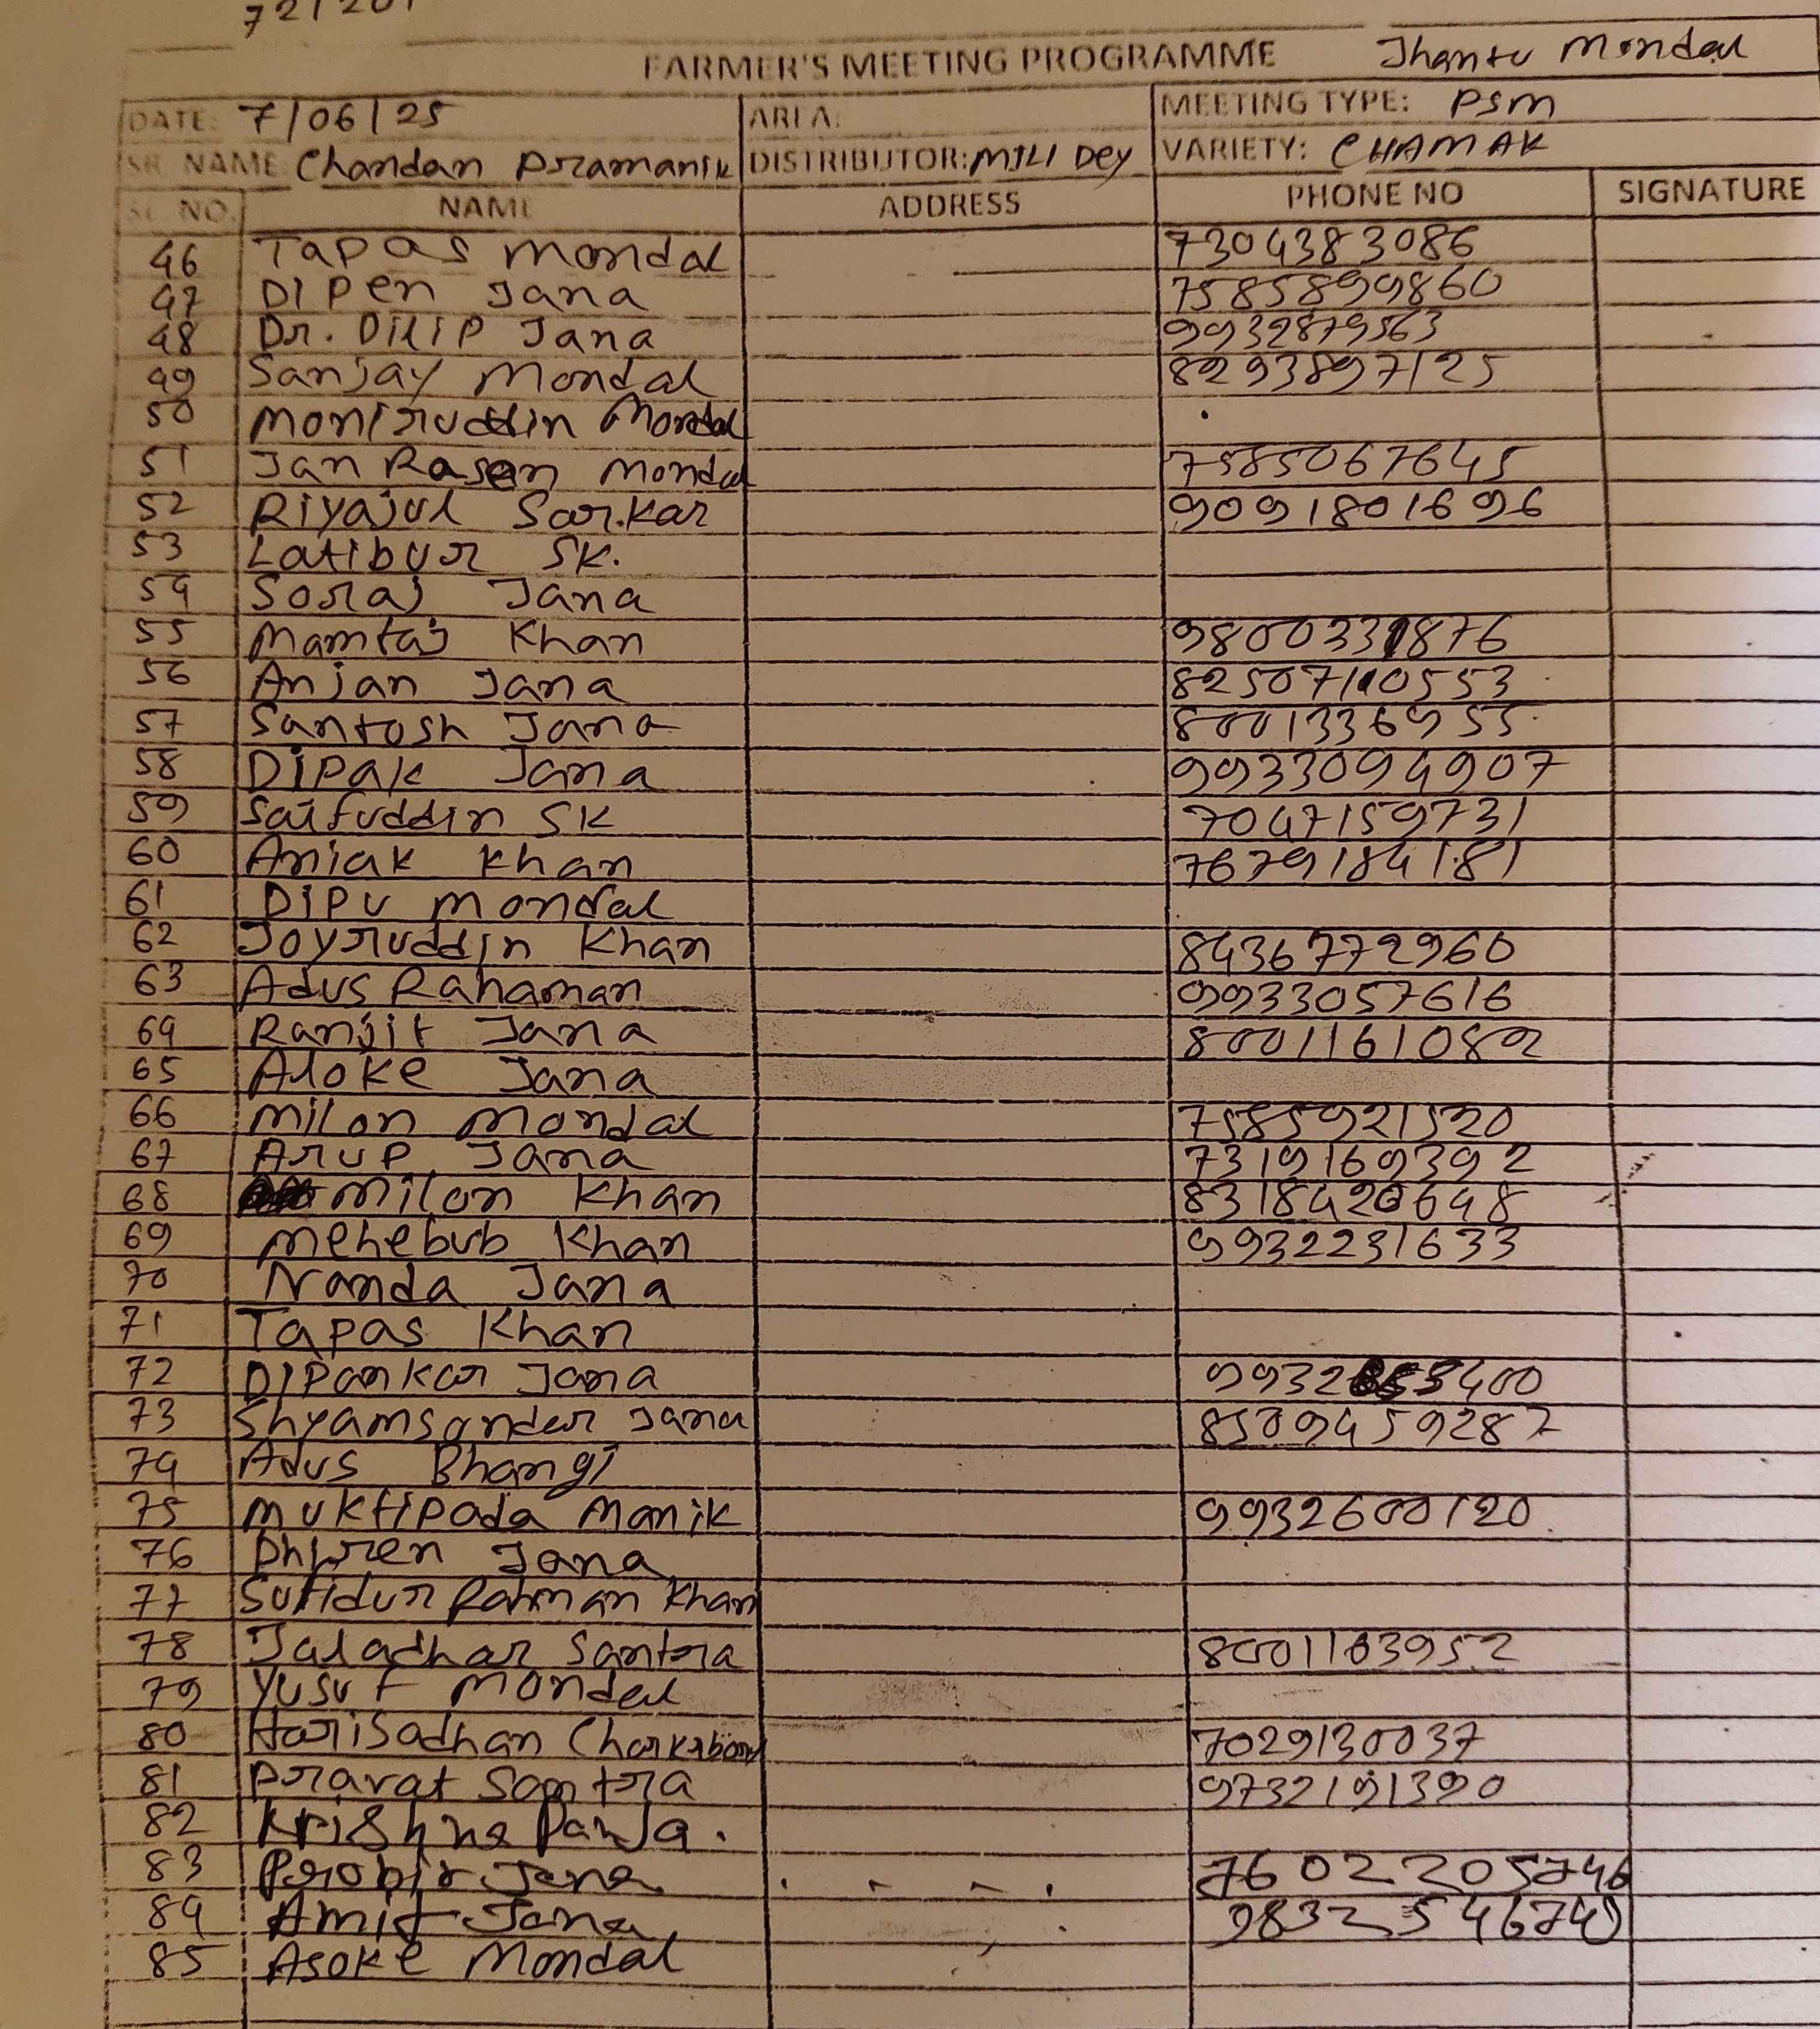 FARMER'S MEETING PROGRAMME Jhantu Mondal
DATE: 7/06/25 AREA: MEETING TYPE: PSM
SR. NAME Chandan Pramanik DISTRIBUTOR: MILI Dey VARIETY: CHAMAK
SL. NO. NAME ADDRESS PHONE NO SIGNATURE
46 Tapas Mondal 7304383086
47 Dipen Jana 7585899860
48 Dr. Dilip Jana 9932879563
49 Sanjay Mondal 8293897125
50 Moniruddin Mondal
51 Jan Rasen Mondal 7585067645
52 Riyajul Sarkar 9091801696
53 Latibur SK.
54 Soraj Jana
55 Mamtaj Khan 9800331876
56 Anjan Jana 8250710553
57 Santosh Jana 8001336955
58 Dipak Jana 9933094907
59 Saifuddin SK 7047159731
60 Aniak Khan 7679184181
61 Dipu Mondal
62 Joyruddin Khan 8436772960
63 Adus Rahaman 9933057616
64 Ranjit Jana 8001161082
65 Aloke Jana
66 Milon Mondal 7585921520
67 Arup Jana 7319169392
68 Milon Khan 8318420648
69 Mehebub Khan 9932231633
70 Nanda Jana
71 Tapas Khan
72 Dipankar Jana
73 Shyamsundar Jana 8509459287
74 Adus Bhangi
75 Muktipada Manik 9932600120
76 Dhiren Jana
77 Sufidur Rahman Khan
78 Jaladhar Santra 8001103952
79 Yusuf Mondal
80 Harisadhan 7029130037
81 Pravat Santra 9732191390
82 Krishna Panja.
83 Probir Jana 76022205746
84 Amit Jana 9832546749
85 Asoke Mondal